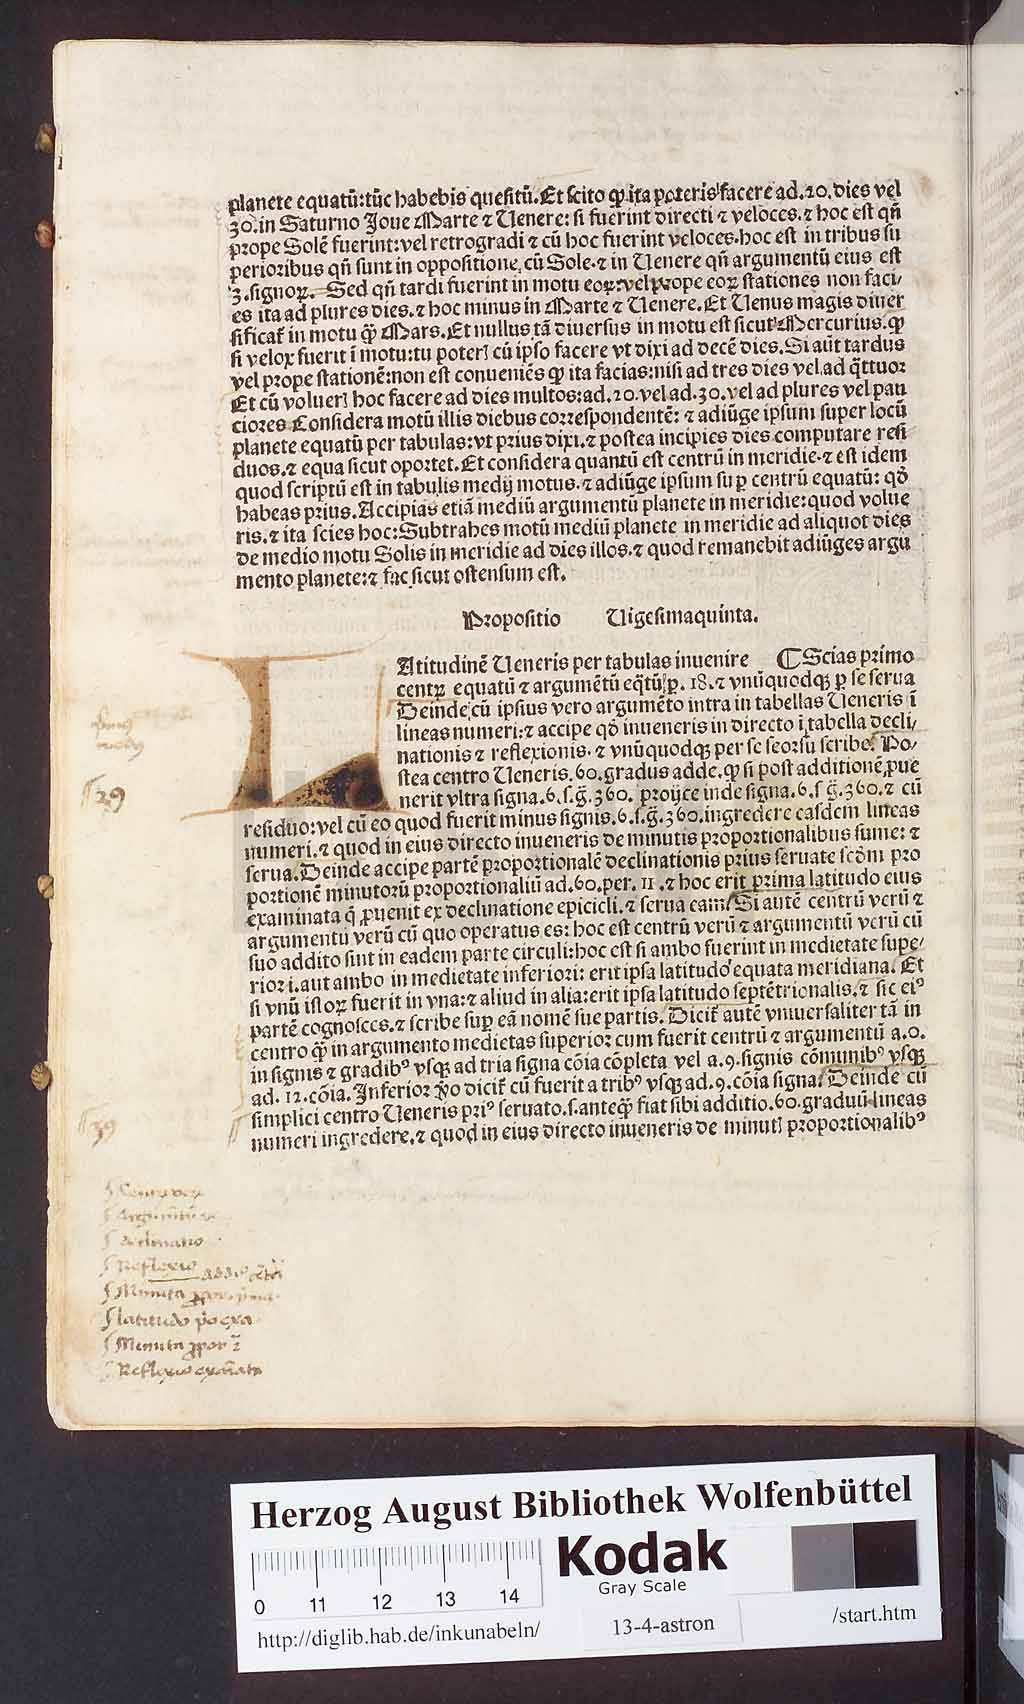 planete equatū:tūc habebis quesitū.Et scito ꝙ ita poteris facere ad.20.dies vel
30.in Saturno Joue Marte ⁊ Uenere: si fuerint directi ⁊ veloces.⁊ hoc est qn̄
prope Solē fuerint:vel retrogradi ⁊ cū hoc fuerint veloces.hoc est in tribus su
perioribus qn̄ sunt in oppositione cū Sole.⁊ in Uenere qn̄ argumentū eius est
3.signoꝝ. Sed qn̄ tardi fuerint in motu eoꝝ:vel prope eoꝝ stationes non faci-
es ita ad plures dies.⁊ hoc minus in Marte ⁊ Uenere.Et Uenus magis diuer
sificat̄ in motu ꝙ̄ Mars.Et nullus tā diuersus in motu est sicut Mercurius.ꝙ
si velox fuerit ī motu:tu poteri cū ipso facere vt dixi ad decē dies.Si aūt tardus
vel prope stationē:non est conueniēs ꝙ ita facias:nisi ad tres dies vel ad q̄ttuor
Et cū volueri hoc facere ad dies multos:ad.20.vel ad.30.vel ad plures vel pau
ciores Considera motū illis diebus correspondentē: ⁊ adiūge ipsum super locū
planete equatū per tabulas:vt prius dixi.⁊ postea incipies dies computare resi
duos.⁊ equa sicut oportet.Et considera quantū est centrū in meridie.⁊ est idem
quod scriptū est in tabulis medij motus.⁊ adiūge ipsum sup centrū equatū: qd̄
habeas prius.Accipias etiā mediū argumentū planete in meridie:quod volue
ris.⁊ ita scies hoc:Subtrahes motū mediū planete in meridie ad aliquot dies
de medio motu Solis in meridie ad dies illos.⁊ quod remanebit adiūges argu
mento planete:⁊ fac sicut ostensum est.
Propositio Uigesimaquinta.
LAtitudinē Ueneris per tabulas inuenire ¶ Scias primo
centꝝ equatū ⁊ argumētū eq̄tū p. 18.⁊ vnūquodqꝫ p se serua
Deinde cū ipsius vero argumēto intra in tabellas Ueneris ī
lineas numeri:⁊ accipe qd̄ inueneris in directo ī tabella decli-
nationis ⁊ reflexionis.⁊ vnūquodqꝫ per se seorsū scribe. Po-
stea centro Ueneris.60.gradus adde.ꝙ si post additionē ꝓue
nerit vltra signa.6.s.g̃.360. proijce inde signa.6.s g̃.360.⁊ cū
residuo:vel cū eo quod fuerit minus signis.6.s.g̃.360.ingredere easdem lineas
numeri.⁊ quod in eius directo inueneris de minutis proportionalibus sume: ⁊
serua.Deinde accipe partē proportionalē declinationis prius seruate scd̄m pro
portionē minutorū proportionaliū ad.60.per. 11.⁊ hoc erit prima latitudo eius
examinata q̄ ꝓuenit ex declinatione epicicli.⁊ serua eam Si autē centrū verū ⁊
argumentū verū cū quo operatus es: hoc est centrū verū ⁊ argumentū verū cū
suo addito sint in eadem parte circuli:hoc est si ambo fuerint in medietate supe-
riori.aut ambo in medietate inferiori: erit ipsa latitudo equata meridiana. Et
si vnū istoꝝ fuerit in vna:⁊ aliud in alia:erit ipsa latitudo septētrionalis.⁊ sic eiꝰ
partē cognosces.⁊ scribe sup eā nomē sue partis. Dicit̄ autē vniuersaliter tā in
centro ꝙ̄ in argumento medietas superior cum fuerit centrū ⁊ argumentū a.0.
in signis ⁊ gradibꝰ vsqꝫ ad tria signa cōia cōpleta vel a.9.signis cōmunibꝰ vsqꝫ
ad. 12.cōia. Inferior v̄o dicit̄ cū fuerit a tribꝰ vsqꝫ ad.9.cōia signa. Deinde cū
simplici centro Ueneris priꝰ seruato.s.anteqꝫ fiat sibi additio.60.graduū lineas
numeri ingredere.⁊ quod in eius directo inueneris de minuti proportionalibꝰ
29
39
Declinatio
Reflexio
Minuta
latitudo
Minuta ꝓpor
Reflexio
Herzog August Bibliothek Wolfenbüttel
Kodak
Gray Scale
0 11 12 13 14
http://diglib.hab.de/inkunabeln/
13-4-astron
/start.htm